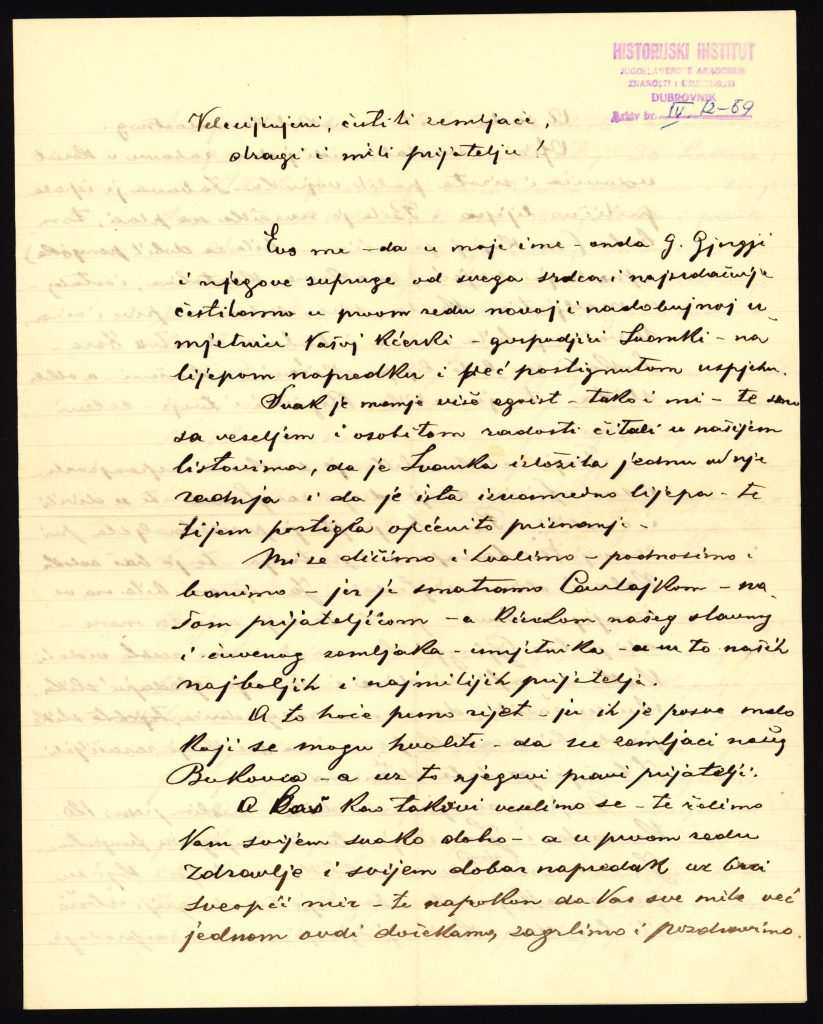 HISTORIJSKI INSTITUT
JUGOSLAVENSKE AKADEMIJE
ZNANOSTI I UMJETNOSTI
DUBROVNIK
Arhiv br. IV, 12-69
Velecijenjeni, čestiti zemljače,
dragi i mili prijatelju!
Evo me - da u moje ime - onda g. Gjurgji
i njegove supruge od svega srdca i najsrdačnije
čestitamo u prvom redu novoj i nadobujnoj u-
mjetnici Vašoj kćerski - gospodjici Ivanki - na
lijepom napredku i već postignutom uspjehu.
Svak je manje više egoist - tako i mi - te smo
sa veseljem i osobitom radosti čitali u našijem
listovima, da je Ivanka izložila jednu od nje
radnja i da je ista izvanredno lijepa - te
tijem postigla općenito priznanje -
Mi se dičimo i hvalimo - podnosimo i
banimo - jer je smatramo Cavtajkom - na-
šom prijateljicom - a kćerkom našeg slavnog
i čuvenog zemljaka - umjetnika - a uz to naših
najboljih i najmilijih prijatelja.
A to hoće puno rijet - jer ih je posve malo
koji se mogu hvaliti - da su zemljaci našeg
Bukovca - a uz to njegovi pravi prijatelji.
A baš kao takovi veselimo se - te želimo
Vam svijem svako dobro - a u prvom redu
zdravlje i svijem dobar napredak uz brzi
sveopći mir - te napokon da Vas sve mile već
jednom ovdi dočekamo, zagrlimo i pozdravimo.